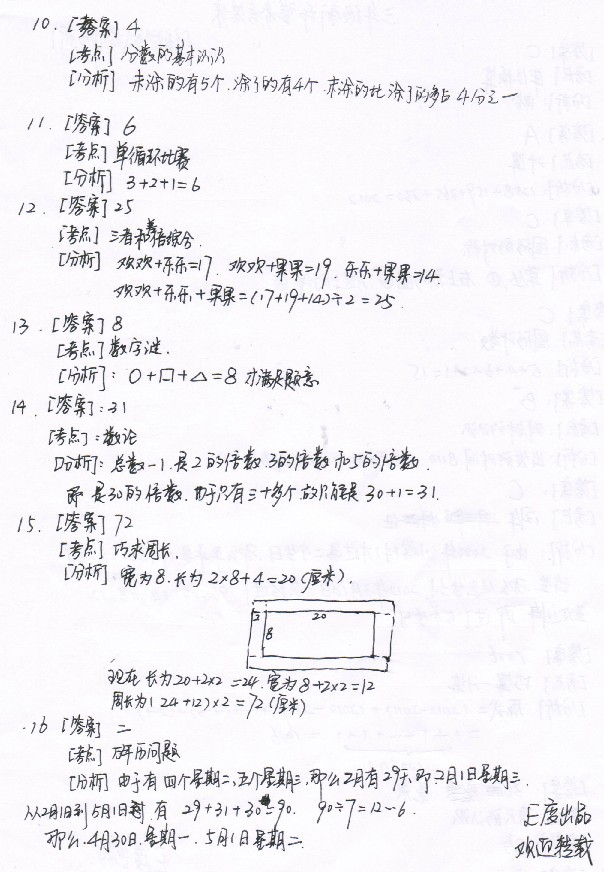 10. [答案] 4
[考点] 分数的基本认识
[分析] 未涂的有5个.涂了的有4个.未涂的比涂了的多占4分之一
11. [答案] 6
[考点] 单循环比赛
[分析] 3+2+1=6
12. [答案] 25
[考点] 三者和倍综合.
[分析] 欢欢+乐乐=17. 欢欢+果果=19. 乐乐+果果=14
欢欢+乐乐+果果=(17+19+14)÷2=25.
13. [答案] 8
[考点] 数字谜.
[分析]: ○+□+△=8 才满足题意
14. [答案]: 31
[考点]: 数论
[分析]: 总数-1.是2的倍数.3的倍数和5的倍数.
即是30的倍数.由于只有三十多个 故只能是30+1=31.
15. [答案] 72
[考点] 巧求周长.
[分析] 宽为8.长为2×8+4=20(厘米).
2 20
8
现在长为20+2×2=24.宽为8+2×2=12
周长为(24+12)×2=72(厘米)
16 [答案] 二
[考点] 万年历问题
[分析] 由于有四个星期二、五个星期三.那么2月有29天.即2月1日星期三.
从2月1日到5月1日时.有 29+31+30=90. 90÷7=12…6.
那么.4月30日.星期一.5月1日星期二.
E度出品
欢迎转载